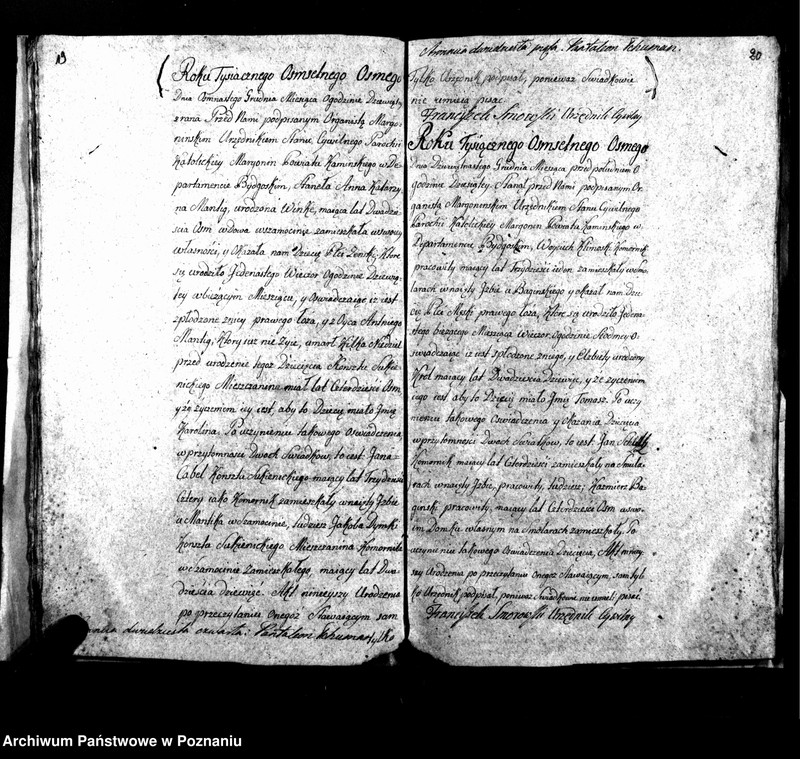 19
Roku Tysiącznego Osmsetnego Osmego
Dnia Osmnastego Grudnia Miesiąca Ogodzinie Dziewiąty
zrana Przed Nami podpisanym Organistą Margo-
ninskim Urzędnikiem Stanu Cywilnego Parochii
Katolickiey Margonin Powiatu Kaminskiego w De-
partamencie Bydgoskim, Staneła Anna Katarzy-
na Mantig, urodzona Winke, maiąca lat Dwadzie-
scia Osm wdowa wszamocinie zamieszkała
własności, y Okazała nam Dziecię Płci Zenski, Ktore
się urodziło Jedenastego Wieczor Ogodzinie Dziewią-
tey wbieżącym Miesiącu, y Oswiadczaiąc iż iest
spłodzone zniey prawego łoża, y z Oyca Antoniego
Mantig, Ktory iuż nie żyie, umarł Kilka Niedziel
przed urodzenie tegoż Dziecięcia Konsztu Sukien-
nickiego Mieszczanina miał lat Czterdziesci Osm
y że życzeniem iey iest, aby to Dziecię miało Jmię
Karolina. Po uczynieniu takowego Oswiadczenia
w przytomności Dwoch Swiadkow, to iest: Jana
Cabel Konsztu Sukienickiego maiący lat Trzydziesci
Cztery iako Komornik zamieszkały w naięty Izbie
u Mantika w Szamocinie, tudzież Jakoba Dymski
Konsztu Sukienickiego Mieszczanina Komornika
w Szamocinie zamieszkałego, maiący lat Dwa-
dziescia dziewięc. Akt ninieyszy Urodzenia
po przeczytaniu onegoż Stawaiącym sam
dwudziesta czwarta: Pantaleon Schuman
tylko
Stronnica dwudziesta piąta. Pantaleon Schuman.
20
Tylko Urzędnik podpisał, ponieważ Swiadkowie
nie umieią pisac.
Franciszek Urzednik Cywilny
Roku Tysiącznego Osmsetnego Osmego
dnia Dziewiętnastego Grudnia Miesiąca przed południem O
godzinie Dziesiątey, Stanął przed Nami podpisanym Or-
ganistą Margoninskim Urzędnikiem Stanu Cywilnego
Parochii Katolickiey Margonin Powiatu Kaminskiego w
Departamencie Bydgoskim, Woyciech Komornik
pracowity maiący lat Trzydziesci ieden zamieszkały w Smo-
larach w naięty Izbie u Baginskiego y okazał nam Dzie-
cię Płci Męski prawego łoża, Ktore się urodziło Jedena-
stego bieżącego Miesiąca Wieczor Ogodzinie Siodmey, O-
swiadczaiąc iż iest spłodzone zniego, y Elzbiety urodzony
Krol maiący lat Dwadziescia Dziewięc, y że życzeniem
iego iest aby to Dziecię miało Jmię Tomasz. Po uczy-
nieniu takowego Oswiadczenia y okazania Dziecięcia
w przytomnosci Dwoch Swiadkow, to iest: Jan
Komornik maiący lat Czterdziesci zamieszkały na Smola-
rach w naięty Izbie, pracowity, tudzież; Kazmierz Ba-
ginski pracowity, maiący lat Czterdziesci Osm w swo-
im Domku własnym na Smolarach zamieszkały. Po
uczynieniu takowego Oswiadczenia Dziecięcia, Akt niniey-
szy Urodzenia po przeczytaniu Onegoż Stawaiącym, sam tyl-
ko Urzędnik podpisał, ponieważ Swiadkowie nie umieli pisać.
Franciszek Urzednik Cywilny
Archiwum Państwowe w Poznaniu